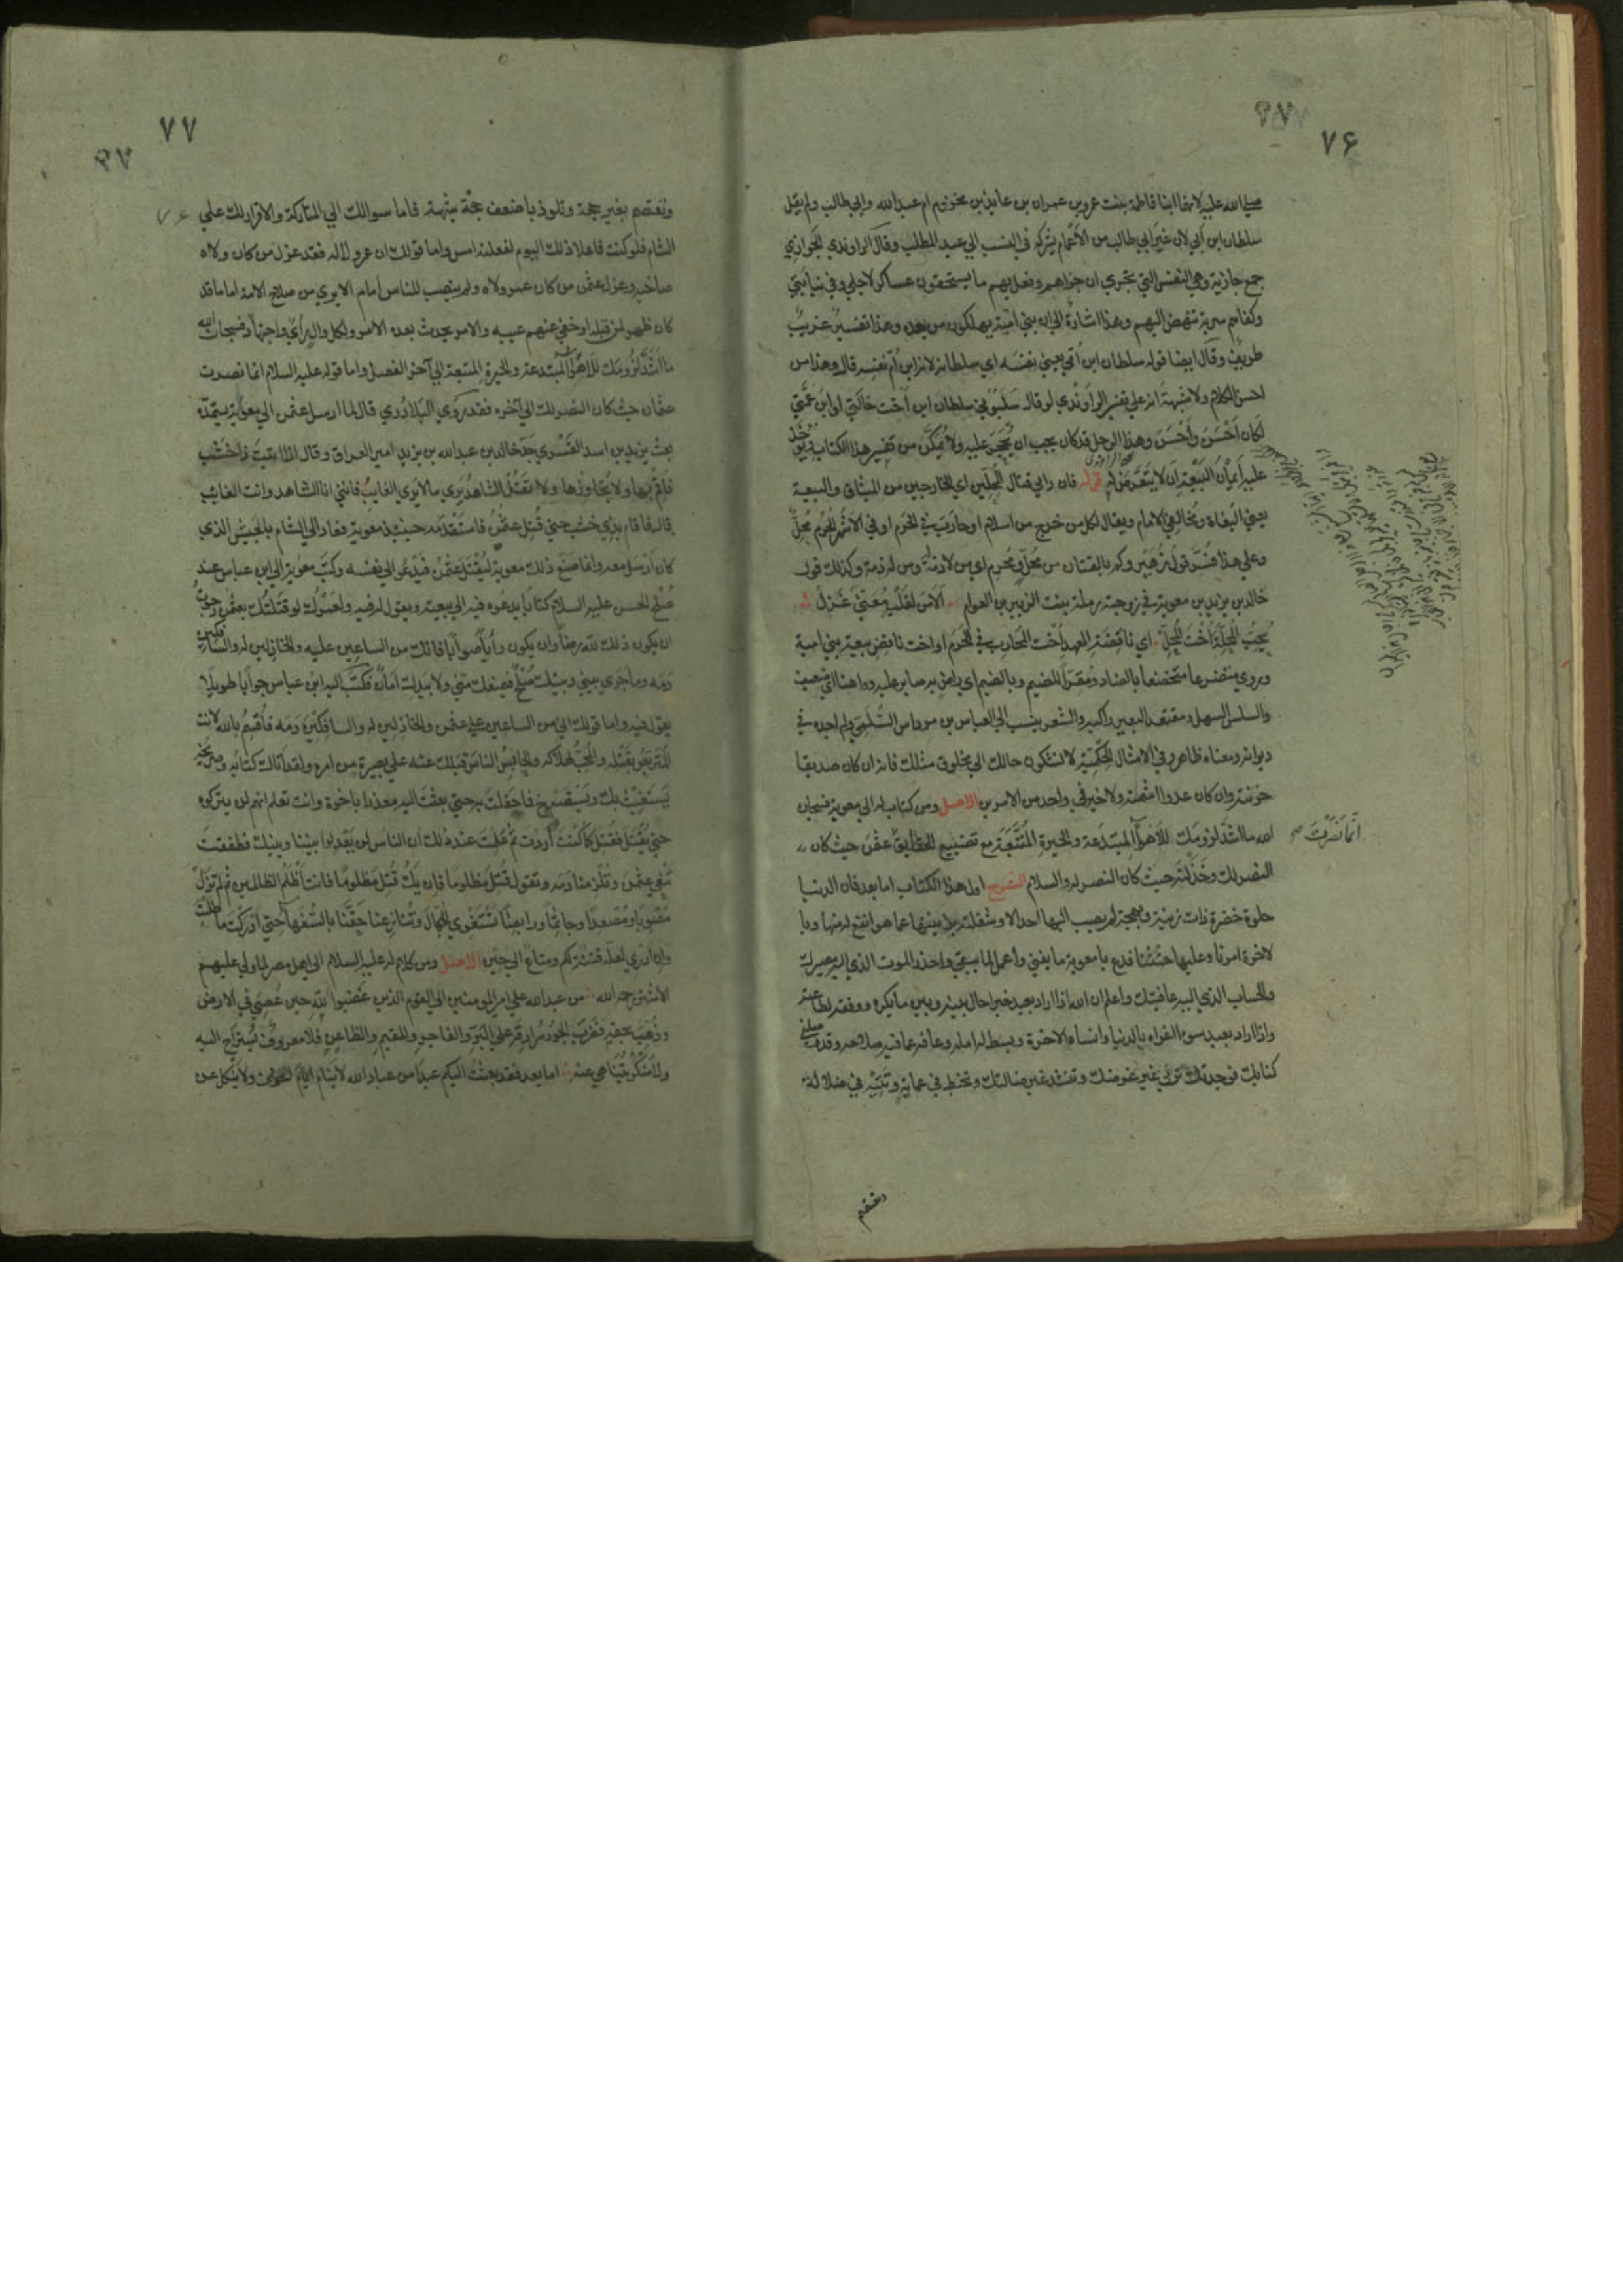 ۷۶
صلی الله علیه لانهما ابنا فاطمة بنت عمرو بن عمران بن عایذ بن مخزوم ام عبد الله وابی طالب ولم یقل
سلطان ابن ابی لان غیر ابی طالب من الاعمام یشرکه فی النسب الی عبد المطلب وقال الراوندی الجوازی
جمع جازیة وهی النفس التی تجزی ای جزاهم وفعل بهم ما یستحقون عساکر لاجلی وفی نیابتی
وکفاهم سریة تنهض الیهم وهذا اشارة الی ان بنی امیة یهلکون من بعده وهذا تفسیر غریب
طریف وقال ایضا قوله سلطان ابن امی یعنی نفسه ای سلطانه لانه ابن ام نفسه قال وهذا من
احسن الکلام ولا شبهة انه علی تفسیر الراوندی لو قال سلبونی سلطان ابن اخت خالتی او ابن اخت عمتی
لکان احسن واحسن وهذا الرجل قد کان یجب ان یحجر علیه ولا یمکن من تفسیر هذا الکتاب ویؤخذ
علیه ایمان البیعة ان لا یتعرض له قوله فان رایی قتال المحلین ای الخارجین من المیثاق والبیعة
یعنی البغاة ومخالفی الامام ویقال لکل من خرج من اسلام او حارب فی الحرم او فی الاشهر الحرم محل
وعلی هذا فسر قول زهیر وکم بالقنان من محل ومحرم ای من لا ذمة له ومن له ذمة وکذلک قول
خالد بن یزید بن معویة فی زوجته رملة بنت الزبیر بن العوام الا من لقلب معنی غزل
یحب المحلة اخت المحل ای ناقضة العهد اخت المحارب فی الحرم او اخت ناقض بیعة بنی امیة
وروی متخضعا متخضعا بالضاد ومقرا للضیم وبالضیم ای راض به صابر علیه وواهنا ای ضعیف
والسلس السهل ومقتعد البعیر راکبه والشعر ینسب الی العباس بن مرداس السلمی ولم اجده فی
دیوانه ومعناه ظاهر وفی الامثال الحکمیة لا تشکون حالک الی مخلوق مثلک فانه ان کان صدیقا
حزنته وان کان عدوا اشمته ولا خیر فی واحد من الامرین الاصل ومن کتاب له الی معویة فسبحان
الله ما اشد لزومک للاهواء المبتدعة والحیرة المتبعة مع تضییع الحقایق عثمن حیث کان
النصر لک وخذلته حیث کان النصر له والسلام الشرح اول هذا الکتاب اما بعد فان الدنیا
حلوة خضرة ذات زینة وبهجة لم یصب الیها احد الا وشغلته بزینتها عما هو انفع له منها وبا
لاخرة امرنا وعلیها حثثنا فدع یا معویة ما یفنی واعمل لما یبقی واحذر الموت الذی الیه مصیرک
والحساب الذی الیه عاقبتک واعلم ان الله اذا اراد بعبد خیرا حال بینه وبین ما یکره ووفقه لطاعته
واذا اراد بعبد سوءا اغراه بالدنیا وانساه الاخرة وبسط له امله وعاقه عما فیه صلاحه وقد وصلنی
کتابک فوجدتک ترمی غیر غرضک وتنشد غیر ضالتک وتخبط فی عمایة وتتیه فی ضلالة
انما نصرت صح
وتعتصم
۷۷
وتعتصم بغیر حجة وتلوذ باضعف شبهة فاما سوالک الی المتارکة والاقرار لک علی
الشام فلو کنت فاعلا ذلک الیوم لفعلته امس واما قولک ان عمر ولاکه فقد عزل من کان ولاه
صاحبه وعزل عثمن من کان عمر ولاه ولم ینصب للناس امام الا لیری من صلاح الامة اماما قد
کان ظهر لمن قبله او خفی عنهم عیبه والامر یحدث بعده الامر ولکل وال رأی واجتهاد فسبحان الله
ما اشد لزومک للاهواء المبتدعة والحیرة المتبعة الی آخر الفصل واما قوله علیه السلام انما نصرت
عثمان حیث کان النصر لک الی آخره فقد روی البلاذری قال لما ارسل عثمن الی معویة یستمده
بعث یزید بن اسد القسری جد خالد بن عبد الله بن یزید امیر العراق وقال اذا اتیت ذا خشب
فاقم بها ولا تجاوزها ولا تقل الشاهد یری ما لا یری الغایب فاننی انا الشاهد وانت الغایب
قال فاقام بذی خشب حتی قتل عثمن فاستقدمه حینئذ معویة فعاد الی الشام بالجیش الذی
کان ارسل معه وانما صنع ذلک معویة لیقتل عثمن فیدعو الی نفسه وکتب معویة الی ابن عباس عند
صلح الحسن علیه السلام کتابا یدعوه فیه الی بیعته ویقول له فیه ولعمرک لو قتلتک بعثمن رجوت
ان یکون ذلک لله رضا وان یکون رأیا صوابا فانک من الساعین علیه والخاذلین له والسافکین
دمه وما جری بینی وبینک صلح فیمنعک منی ولا بیدک امان فکتب الیه ابن عباس جوابا طویلا
یقول فیه واما قولک انی من الساعین علی عثمن والخاذلین له والسافکین دمه فاقسم بالله لانت
المتربص بقتله والمحب لهلاکه والحابس الناس قبلک عنه علی بصیرة من امره ولقد اتاک کتابه وصریخه
یستغیث بک ویستصرخ فما حفلت به حتی بعثت الیه معذرا باخرة وانت تعلم انهم لن یترکوه
حتی یقتل فقتل کما کنت اردت ثم علمت عند ذلک ان الناس لن یعدلوا بیننا وبینک فطفقت
تنعی عثمن وتلزمنا دمه وتقول قتل مظلوما فان یک قتل مظلوما فانت اظلم الظالمین ثم لم تزل
مصوبا ومصعدا وجاثما ورابضا تستغوی الجهال وتنازعنا حقنا بالسفهاء حتی ادرکت ما طلبت
وان ادری لعله فتنة لکم ومتاع الی حین الاصل ومن کلام له علیه السلام الی اهل مصر لما ولی علیهم
الاشتر رحمه الله من عبد الله علی امیر المومنین الی القوم الذین غضبوا لله حین عصی فی الارض
وذهب بحقه فضرب الجور سرادقه علی البر والفاجر والمقیم والظاعن فلا معروف یستراح الیه
ولا منکر یتناهی عنه اما بعد فقد بعثت الیکم عبدا من عباد الله لا ینام ایام الخوف ولا ینکل عن